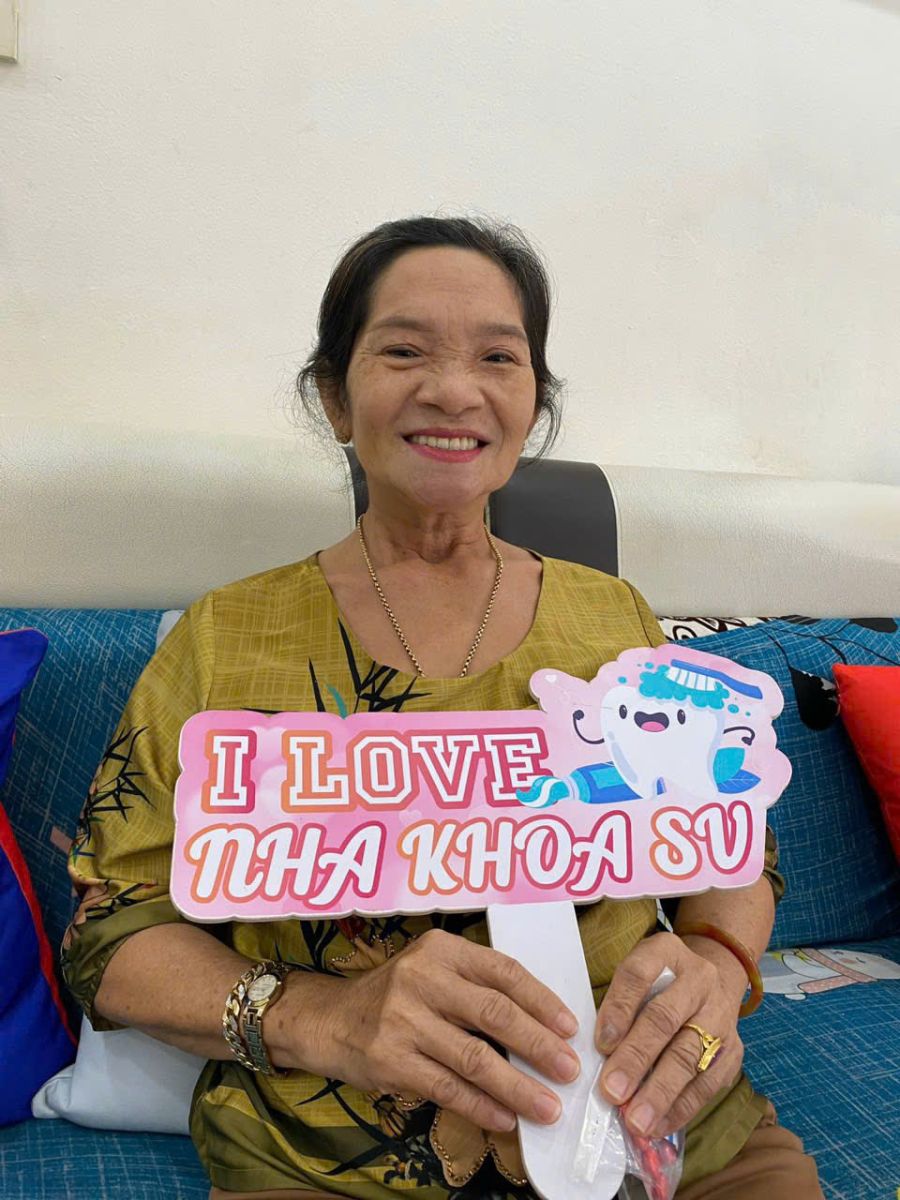 I LOVE
NHA KHOA SV